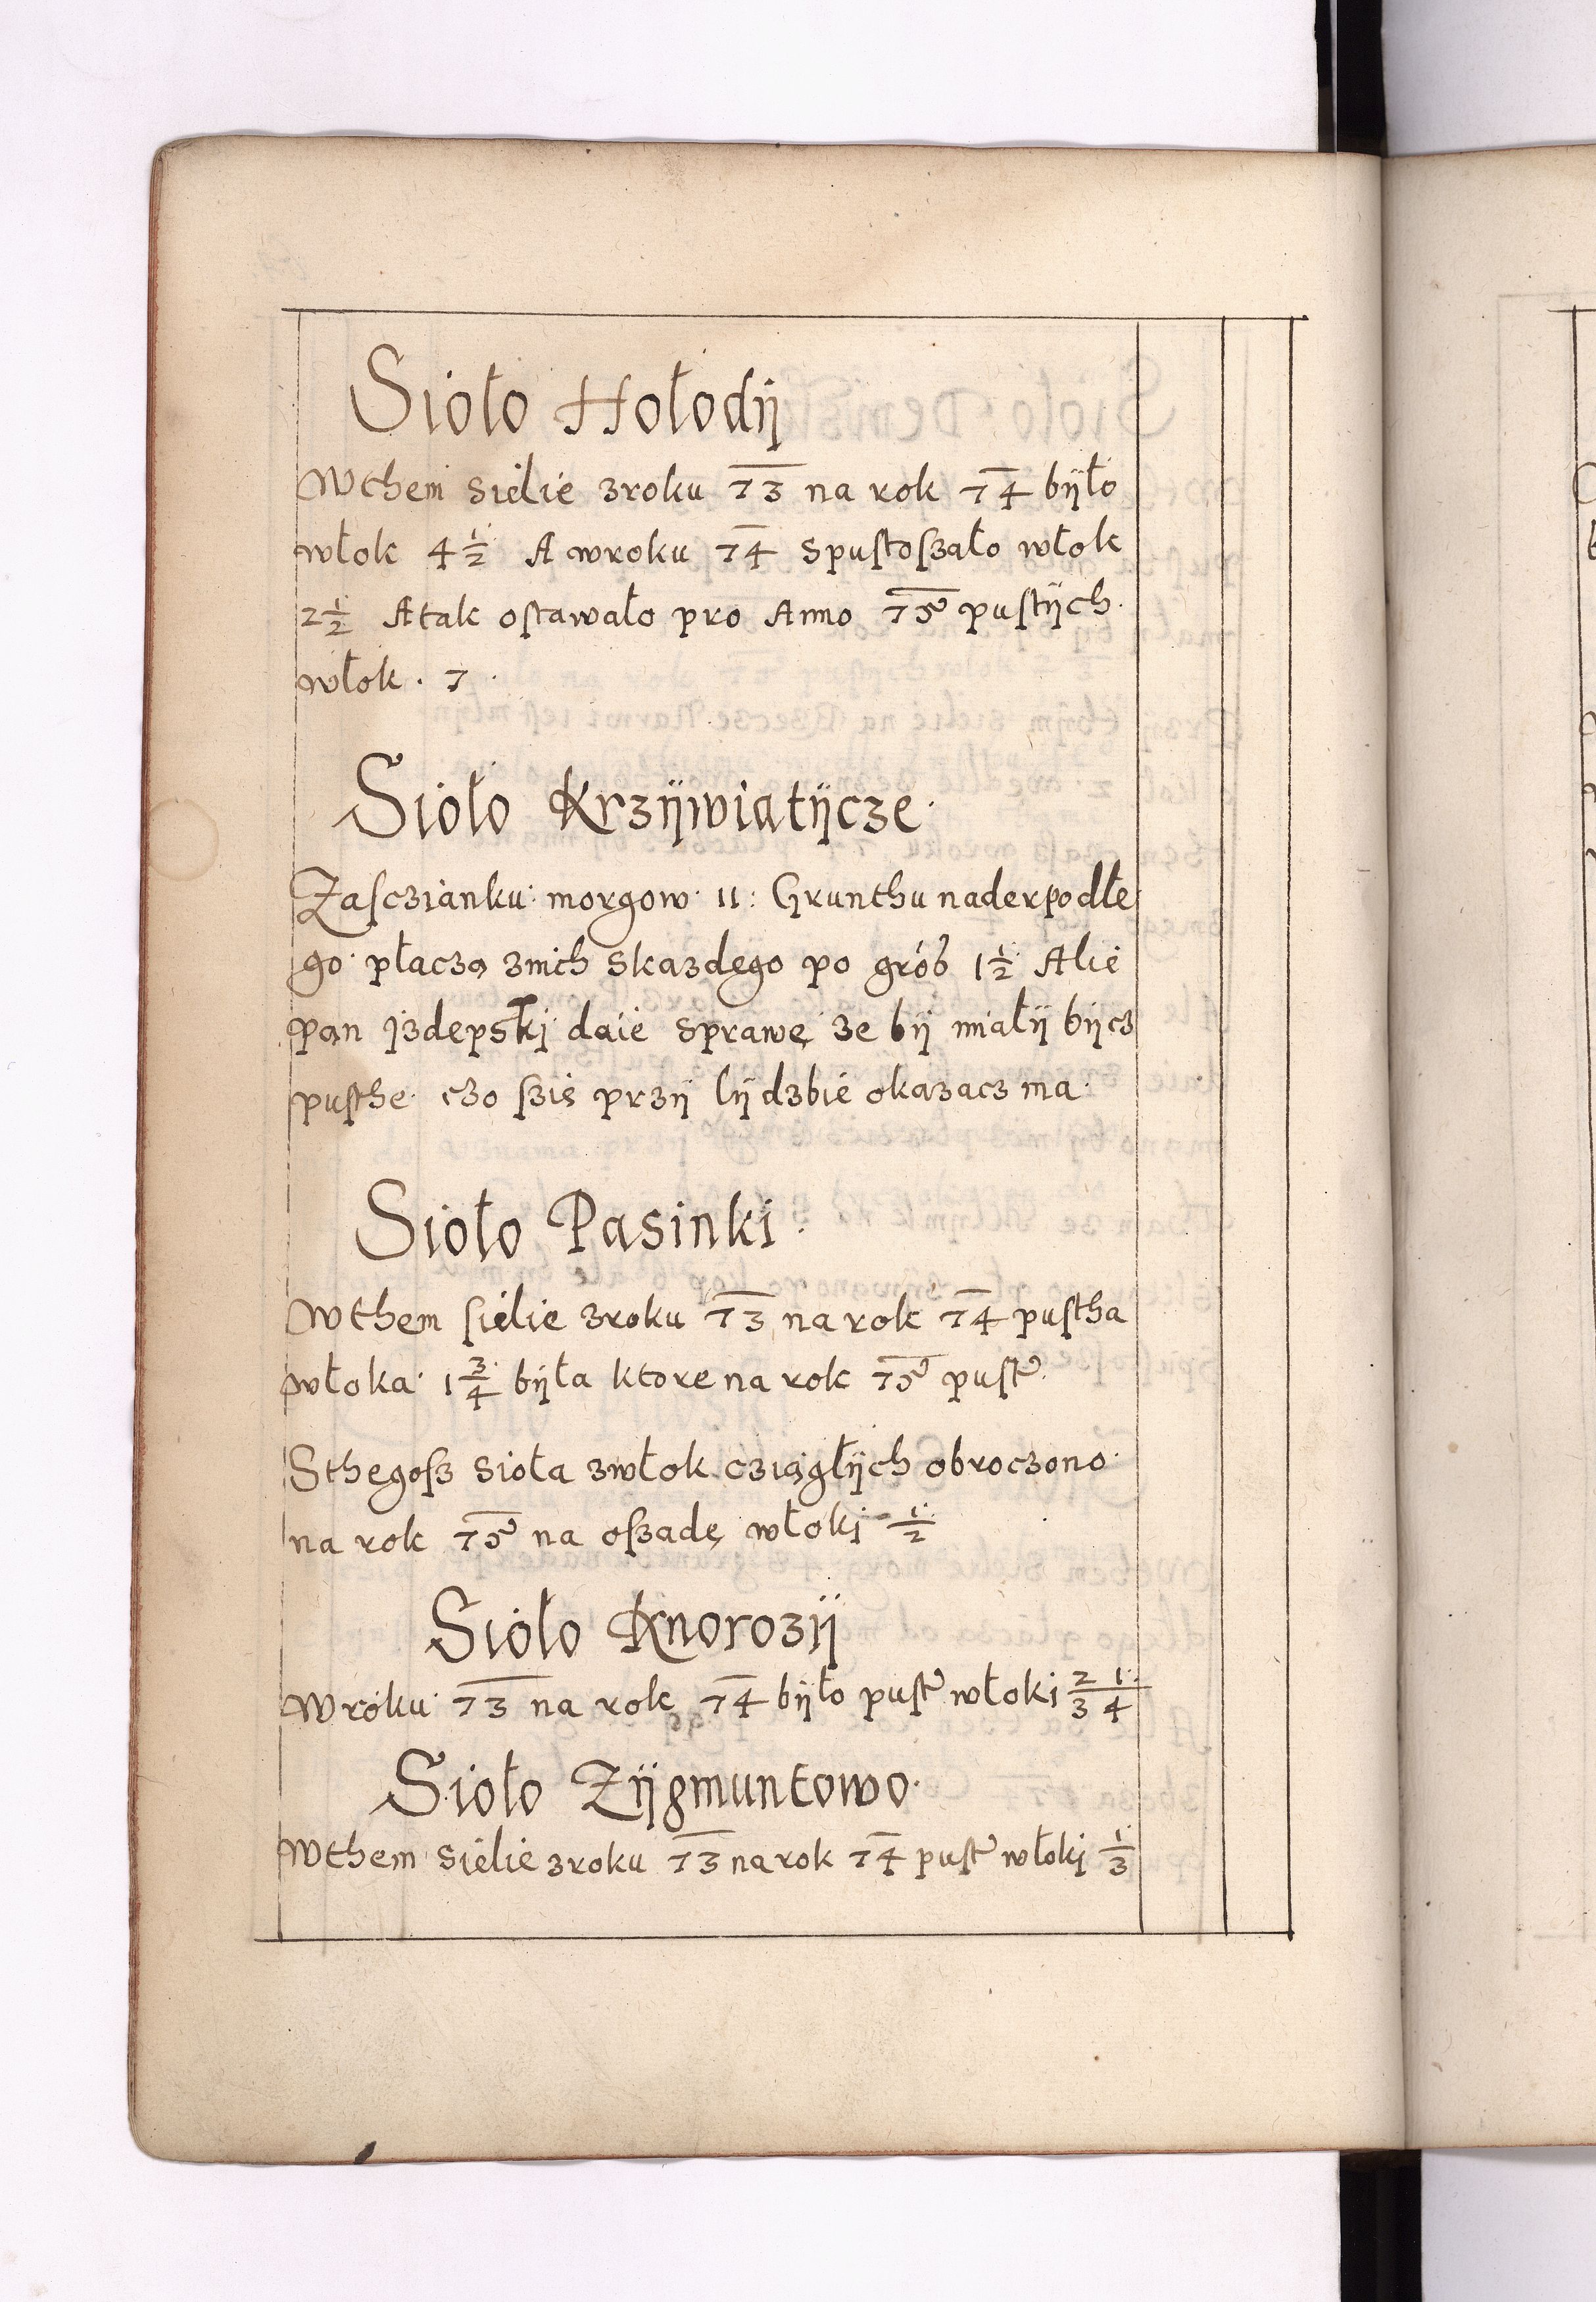 Sioło Hołodÿ
Wthem sielie zroku 73 na rok 74 bÿło
włok 4 1/2 A wroku 74 spuſtoſzało włok
2 1/2 Atak oſtawało pro Anno 75 puſtÿch
włok . 7 .
Sioło Krzÿwiatÿcze
Zaſczianku morgow 11: Grunthu naderpodłe
go płaczą znich skazdego po 1 1/2 Alie
pan Jzdepskj daie sprawę ze bÿ miałÿ bÿcz
puſthe czo ſzię przÿ lÿdzbie okazacz ma
Sioło Pasinki
Wthem ſielie zroku 73 na rok 74 puſtha
włoka 1 3/4 bÿła ktore na rok 75 puſte
Sthegoſz sioła zwłok cziągłÿch obroczono
na rok 75 na oſzadę włokj 1/2
Sioło Knorozÿ
Wroku 73 na rok 74 bÿło puſte włoki 2/3 1/4
Sioło Zÿgmuntowo
Wthem sielie zroku 73 na rok 74 puſte włokj 1/3